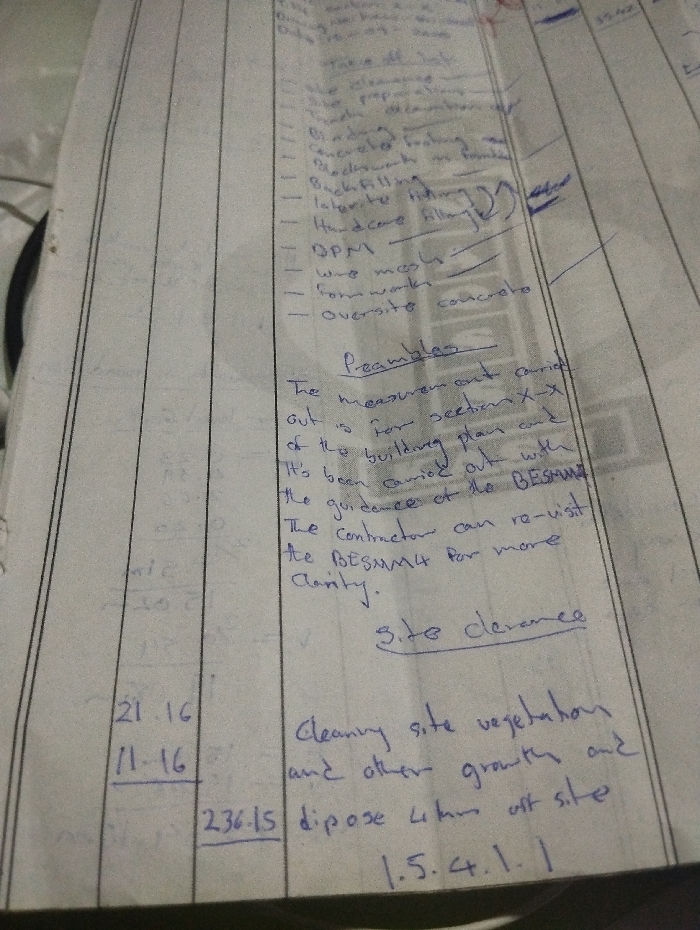 section X-X
Take off list
— Site clearance
— Site preparation
— Trench excavation
— Blinding
— Concrete footing
— Blockwork in
— Backfilling
— laterite filling
— Hardcore filling
— DPM
— wire mesh
— Formwork
— Oversite concrete
Peambles
The measurement carried
out is for section X-X
of the building plan and
It's been carried out with
the guidance of the BESMM4
The contractor can re-visit
the BESMM4 for more
Clarity.
Site clerance
21.16
11.16
236.15
Clearing site vegetation
and other growth and
dipose 4km off site
1.5.4.1.1